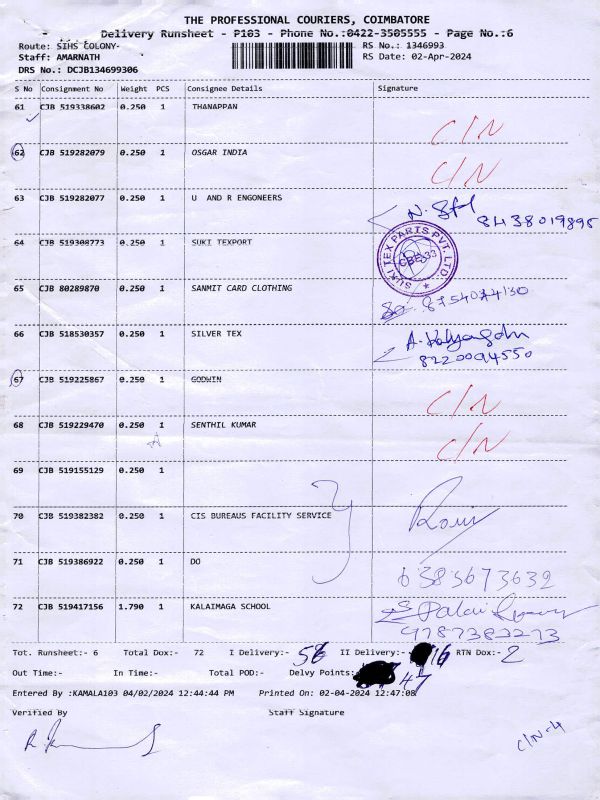 THE PROFESSIONAL COURIERS, COIMBATORE
Delivery Runsheet - P103 - Phone No.:0422-3505555 - Page No.:6
Route: SIHS COLONY- RS No.: 1346993
Staff: AMARNATH RS Date: 02-Apr-2024
DRS No.: DCJB134699306
S No Consignment No Weight PCS Consignee Details Signature
61 CJB 519338602 0.250 1 THANAPPAN C/N
62 CJB 519282079 0.250 1 OSGAR INDIA C/N
63 CJB 519282077 0.250 1 U AND R ENGONEERS
8438019895
64 CJB 519308773 0.250 1 SUKI TEXPORT SUKI TEX PARTS PVT. LTD. CBE-33
65 CJB 80289870 0.250 1 SANMIT CARD CLOTHING
66 CJB 518530357 0.250 1 SILVER TEX
8220094550
67 CJB 519225867 0.250 1 GODWIN C/N
68 CJB 519229470 0.250 1 SENTHIL KUMAR C/N
69 CJB 519155129 0.250 1
70 CJB 519382382 0.250 1 CIS BUREAUS FACILITY SERVICE
71 CJB 519386922 0.250 1 DO 6385673632
72 CJB 519417156 1.790 1 KALAIMAGA SCHOOL
9787382273
Tot. Runsheet:- 6 Total Dox:- 72 I Delivery:- 56 II Delivery:- 16 RTN Dox:- 2
Out Time:- In Time:- Total POD:- Delvy Points:- 47
Entered By :KAMALA103 04/02/2024 12:44:44 PM Printed On: 02-04-2024 12:47:08
Verified By Staff Signature
C/N-4